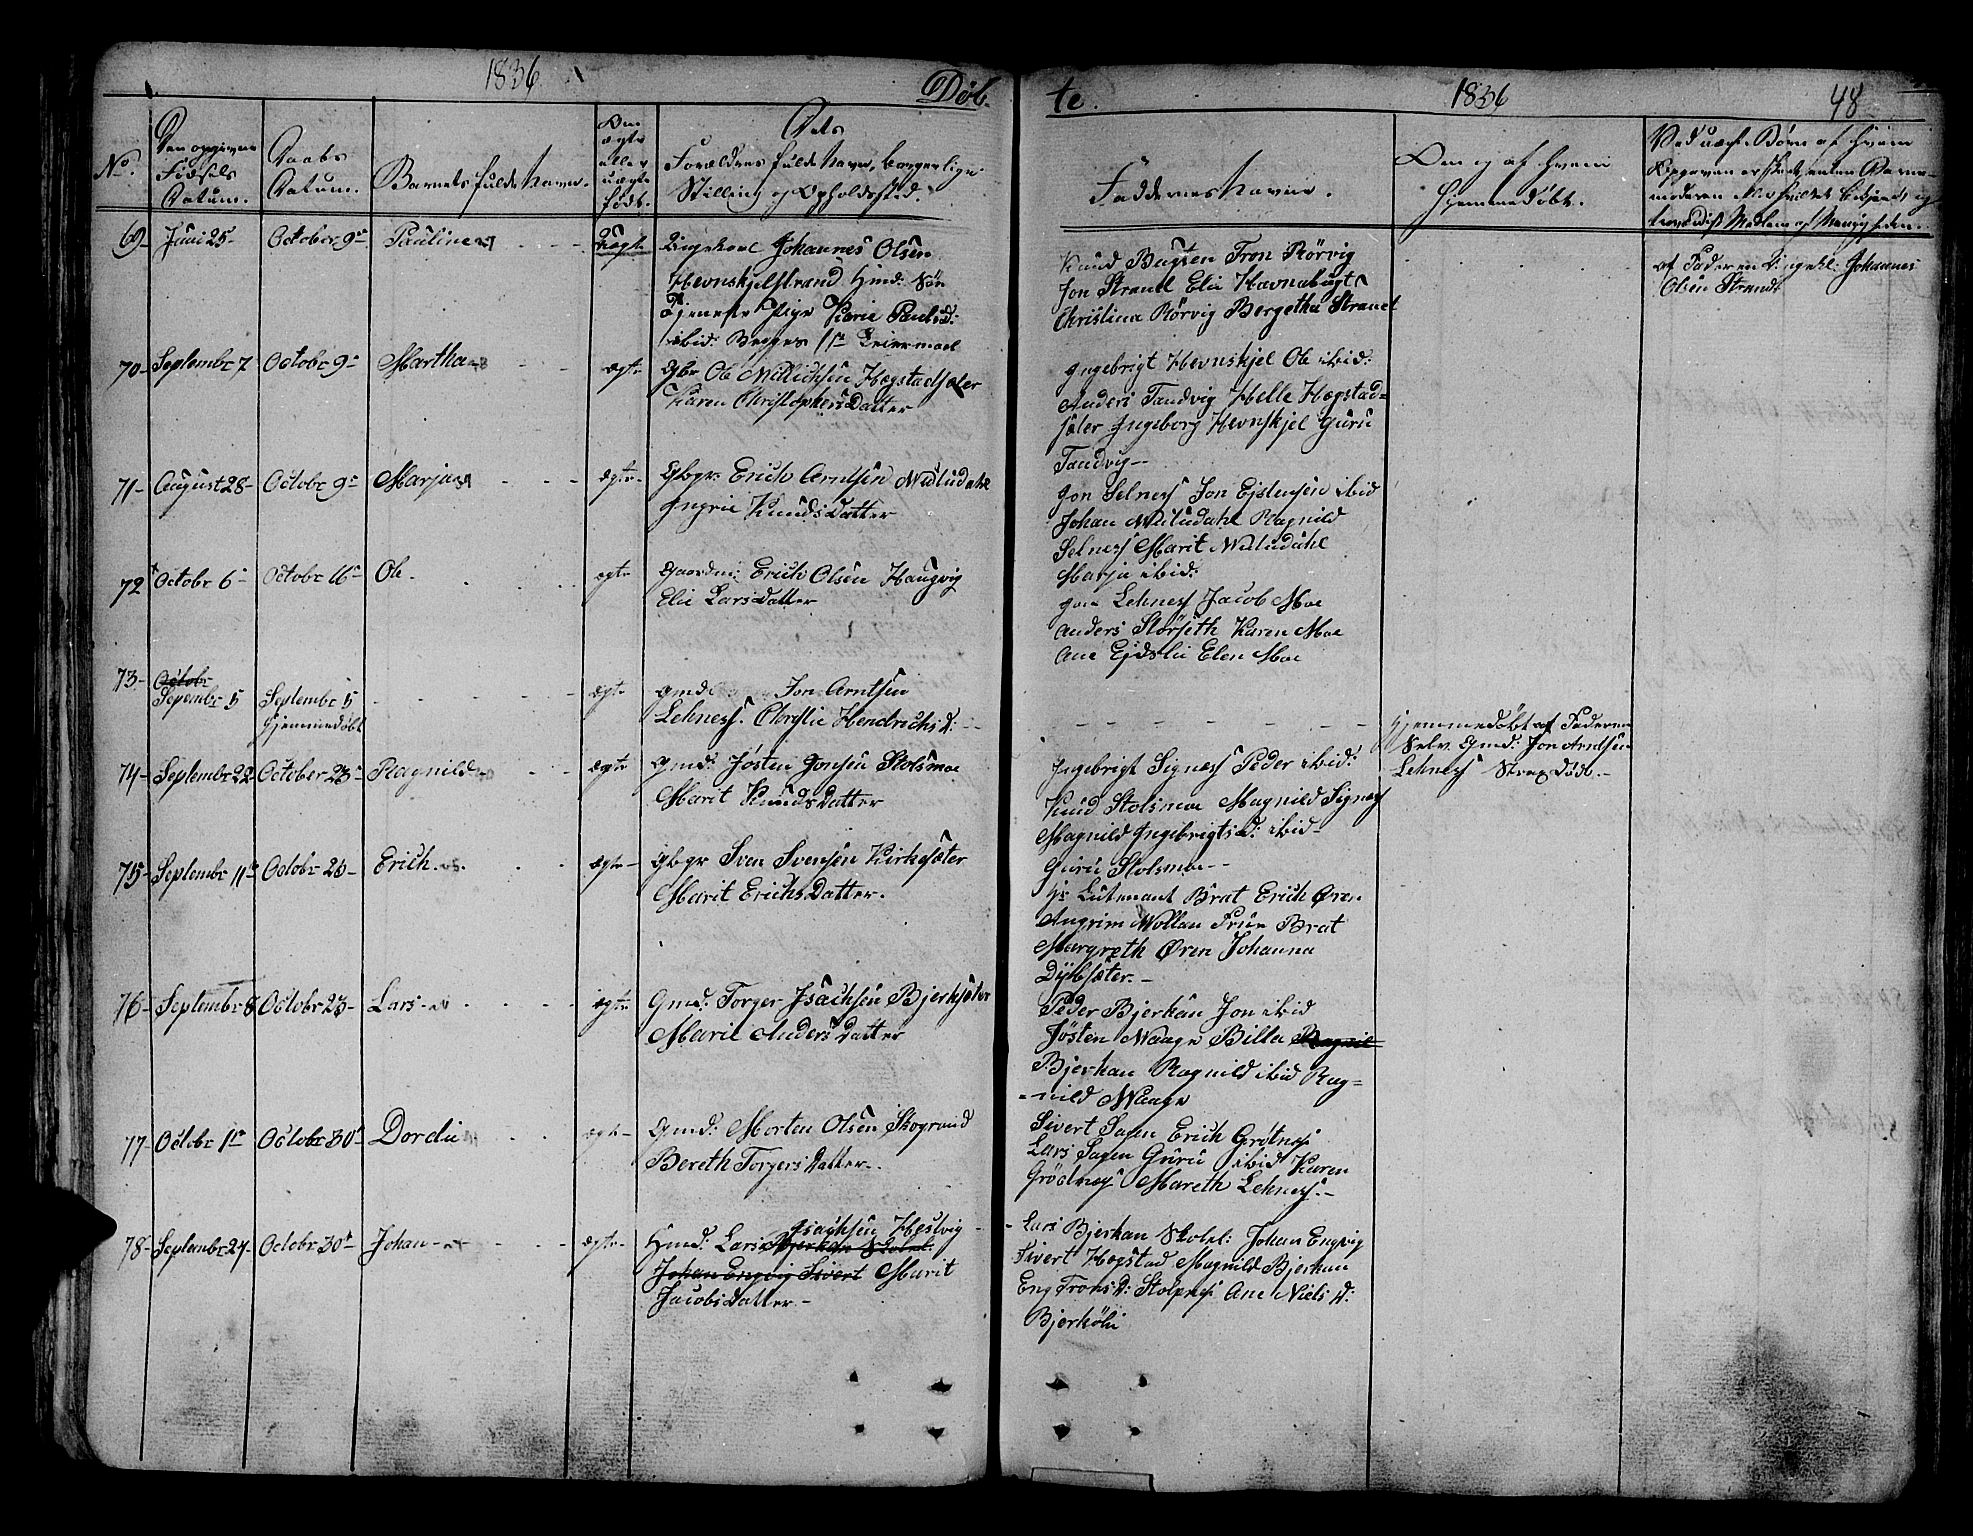 1836
Døb-
te.
1836
48
No.
Den opgivne
Fødsels
Datum.
Daabs
Datum.
Barnets fulde Navn.
Om
ægte
eller
uægte
født.
Dets
Forældres fulde Navn, borgerlige
Stilling og Opholdssted.
Faddernes Navne.
Om og af hvem
hjemmedøbt.
Ved uægte Børn af hvem
Opgaven er skeet, enten Barne-
moderen eller
troværdigt Medlem af Menigheden.
69- Juni 25- October 9de Pauline - - - Uægte Ungekarl Johannes Olsen
Hevnskjelstrand
Tjeneste Pige Karie Paulsd:
ibid: Begges 1ste Leiermaal
Knud Bugten Tron Rörvig
Jon Strand Elie Havnabugt
Christina Rörvig Bergetha Strand
af Faderen Ungekl: Johannes
Olsen Strand
70- Septembr 7 Octobr 9- Martha - - - ægte Gbr Ole Hægstadsæter
Karen ChristophersDatter
Ingebrigt Hevnskjel Ole ibid:
Anders Tandvig Helle Hægstad=
sæter Ingeborg Hevnskjel Guru
Tandvig-
71- August 28- Octobr 9- Marja - - - ægte- Gbgr. Erich Arntsen
KnudsDatter
Jon Selness Jon Ejstensen ibid
Johan Ragnild
Selness Marit
Marja ibid:
72 Octobr 6- Octobr 16- Ole. ægte Gaardm: Erich Olsen Haugvig
Elie LarsDatter
Lehness Jacob Moe
Anders Störseth Karen Moe
Ane Ejdslie Elen Moe
73- Octobr
Sepembr 5 Septembr 5 - - - ægte Gmd: Jon Arntsen
hjemmedøbt
Lehness. Hendrichsd:
hjemmedøbt af Faderen
Selv. Gmd: Jon Arntsen
Lehness Strax död.-
74- Septembr 22 October 23- Ragnild - - ægte Gmd: Jösten Jonsen Stolsmoe
Marit KnudsDatter
Ingebrigt Signess Peder ibid:
Knud Stolsmoe Magnild Signess
Magnild Ingebrigtsd: ibid-
Guru Stolsmoe-
75- Septembr 11te Octobr 23- Erich - - ægte- Gbgr Sven Svensen Kirksæter
Marit ErichsDatter.
Hr Lutenant Brat Erich Øren
Wollan Frue Brat
Margreth Øren Johanna
-
76- Septembr 8 Octobr 23- Lars - - - ægte Gmd: Torger Isachsen Bjerksæter
Marit AndersDatter
Peder Bjerkan Jon ibid
Jösten Waage Ragnil
Bjerkan Ragnild ibid Rag=
-nild Waage
77- Octobr 1te Octobr 30te Dordi - - - ægte- Gmd: Morten Olsen Skogrand
Bereth TorgersDatter.
Sivert Sagen Erich Grötness
Lars Sagen Guru ibid Karen
Grödness Mareth Lehness.-
78- Septembr 27- Octobr 30te Johan - - - ægte- Hmd: Lars Isachsen Hestvig
Bjerkan Skolel:
Johan Engvig Sivert Marit
JacobsDatter-
- Lars Bjerkan Skolel: Johan Engvig
Sivert Hægstad Magnild Bjerkan
Eng TronsD: Stolpnes Ane Niels D:
Bjerköli